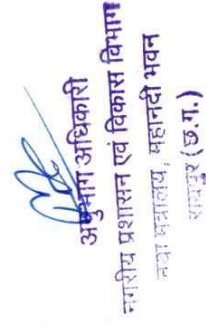 अनुभाग अधिकारी
नगरीय प्रशासन एवं विकास विभाग
मंत्रालय, महानदी भवन
(छ.ग.)